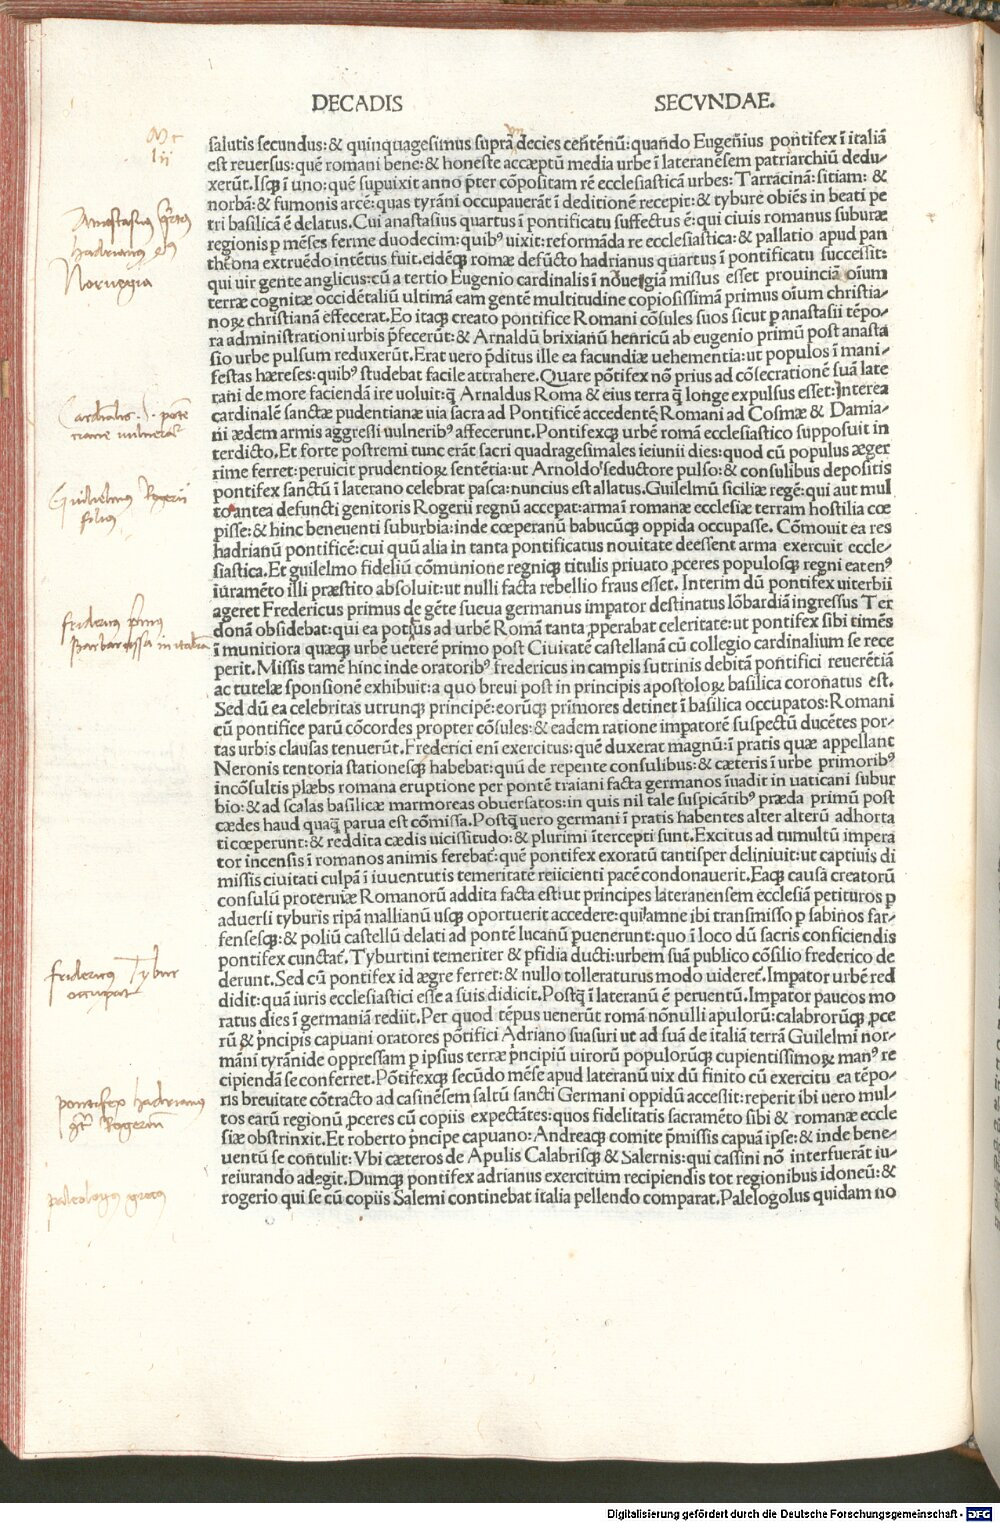 DECADIS SECVNDAE.
salutis secundus: & quinquagesimus supra decies centenũ: quando Eugenius pontifex ĩ italiã
est reuersus: quẽ romani bene: & honeste accæptũ media urbe ĩ lateranẽsem patriarchiũ dedu-
xerũt. Isq; ĩ uno: quẽ supuixit anno p̃ter cõpositam rẽ ecclesiasticã urbes: Tarracinã: sitiam: &
norbã: & fumonis arcẽ: quas tyrãni occupauerãt ĩ deditionẽ recepit: & tybure obiẽs in beati pe
tri basilicã ẽ delatus. Cui anastasius quartus ĩ pontificatu suffectus ẽ: qui ciuis romanus suburæ
regionis p mẽses ferme duodecim: quibꝰ uixit: reformãda re ecclesiastica: & pallatio apud pan
theona extruẽdo intẽtus fuit. eidẽq; romæ defũcto hadrianus quartus ĩ pontificatu successit:
qui uir gente anglicus: cũ a tertio Eugenio cardinalis ĩ nouergiã missus esset prouinciã oĩum
terræ cognitæ occidẽtaliũ ultimã eam gentẽ multitudine copiosissimã primus oĩum christia-
noꝝ christianã effecerat. Eo itaq; creato pontifice Romani cõsules suos sicut p anastasii tẽpo-
ra administrationi urbis p̃fecerũt: & Arnaldũ brixianũ henricũ ab eugenio primũ post anasta
sio urbe pulsum reduxerũt. Erat uero p̃ditus ille ea facundiæ uehementia: ut populos ĩ mani-
festas hæreses: quibꝰ studebat facile attrahere. Quare põtifex nõ prius ad cõsecrationẽ suã late
rani de more faciendã ire uoluit: q̃ Arnaldus Roma & eius terra q̃ longe expulsus esset: Interea
cardinalẽ sanctæ pudentianæ uia sacra ad Pontificẽ accedentẽ Romani ad Cosmæ & Damia-
ni ædem armis aggressi uulneribꝰ affecerunt. Pontifexq; urbẽ romã ecclesiastico supposuit in
terdicto. Et forte postremi tunc erãt sacri quadragesimales ieiunii dies: quod cũ populus æger
rime ferret: peruicit prudentioꝝ sentẽtia: ut Arnoldo seductore pulso: & consulibus depositis
pontifex sanctũ ĩ laterano celebrat pasca: nuncius est allatus. Guilelmũ siciliæ regẽ: qui aut mul
to antea defuncti genitoris Rogerii regnũ accepat: arma ĩ romanæ ecclesiæ terram hostilia cœ
pisse: & hinc beneuenti suburbia: inde cœperanũ babucũq; oppida occupasse. Cõmouit ea res
hadrianũ pontificẽ: cui quũ alia in tanta pontificatus nouitate deessent arma exercuit eccle-
siastica. Et guilelmo fidesiũ cõmunione regniq; titulis priuato ꝓceres populosq; regni eatenꝰ
iuramẽto illi præstito absoluit: ut nulli facta rebellio fraus esset. Interim dũ pontifex uiterbii
ageret Fredericus primus de gẽte sueua germanus imꝑator destinatus lõbardiã ingressus Ter
donã obsidebat: qui ea potitus ad urbẽ Romã tanta ꝓperabat celeritate: ut pontifex sibi timẽs
ĩ munitiora quæq; urbẽ ueterẽ primo post Ciuitatẽ castellanã cũ collegio cardinalium se rece
perit. Missis tamẽ hinc inde oratoribꝰ fredericus in campis sutrinis debitã pontifici reuerẽtiã
ac tutelæ sponsionẽ exhibuit: a quo breui post in principis apostoloꝝ basilica coronatus est.
Sed dũ ea celebritas utrunq; principẽ: eorũq; primores detinet ĩ basilica occupatos: Romani
cũ pontifice parũ cõcordes propter cõsules: & eadem ratione imꝑatorẽ suspectũ ducẽtes por-
tas urbis clausas tenuerũt. Frederici enĩ exercitus: quẽ duxerat magnũ: ĩ pratis quæ appellant
Neronis tentoria stationesq; habebat: quũ de repente consulibus: & cæteris ĩ urbe primoribꝰ
incõsultis plæbs romana eruptione per pontẽ traiani facta germanos ĩuadit in uaticani subur
bio: & ad scalas basilicæ marmoreas obuersatos: in quis nil tale suspicãtibꝰ præda primũ post
cædes haud quaq̃ parua est cõmissa. Postq̃ uero germani ĩ pratis habentes alter alterũ adhorta
ti cœperunt: & reddita cædis uicissitudo: & plurimi ĩtercepti sunt. Excitus ad tumultũ impera
tor incensis ĩ romanos animis ferebat̃: quẽ pontifex exoratũ tantisper deliniuit: ut captiuis di
missis ciuitati culpã ĩ iuuentutis temeritatẽ reiicienti pacẽ condonauerit. Eaq; causa creatorũ
consulũ proteruiæ Romanorũ addita facta est: ut principes lateranensem ecclesiã petituros p
aduersi tyburis ripã mallianũ usq; oportuerit accedere: qui amne ibi transmisso p sabinos far-
fensesq;: & poliũ castellũ delati ad pontẽ lucanũ puenerunt: quo ĩ loco dũ sacris conficiendis
pontifex cunctat̃. Tyburtini temeriter & pfidia ducti: urbem suã publico cõsilio frederico de
derunt. Sed cũ pontifex id ægre ferret: & nullo tolleraturus modo uideret̃. Imꝑator urbẽ red
didit: quã iuris ecclesiastici esse a suis didicit. Postq̃ ĩ lateranũ ẽ peruentũ. Imꝑator paucos mo
ratus dies ĩ germaniã rediit. Per quod tẽpus uenerũt romã nõnulli apulorũ: calabrorũq; ꝓce
rũ & p̃ncipis capuani oratores põtifici Adriano suasuri ut ad suã de italiã terrã Guilelmi nor-
mãni tyrãnide oppressam p ipsius terræ p̃ncipiũ uirorũ populorũq; cupientissimoꝝ manꝰ re
cipiendã se conferret. Põtifexq; secũdo mẽse apud lateranũ uix dũ finito cũ exercitu ea tẽpo-
ris breuitate cõtracto ad casinẽsem saltũ sancti Germani oppidũ accessit: reperit ibi uero mul-
tos earũ regionũ ꝓceres cũ copiis expectãtes: quos fidelitatis sacramẽto sibi & romanæ eccle
siæ obstrinxit. Et roberto p̃ncipe capuano: Andreaq; comite p̃missis capuã ipse: & inde bene-
uentũ se contulit: Vbi cæteros de Apulis Calabrisq; & Salernis: qui cassini nõ interfuerãt iu-
reiurando adegit. Dumq; pontifex adrianus exercitum recipiendis tot regionibus idoneũ: &
rogerio qui se cũ copiis Salerni continebat italia pellendo comparat. Palelogolus quidam no
Mc
lii
Norvegia
Guilielmus Rogerii
filius
fridericus primus
Barbarossa in italiam
fridericus Tybur
occupat
pontifex hadrianus
paleologus grecus
Digitalisierung gefördert durch die Deutsche Forschungsgemeinschaft - DFG